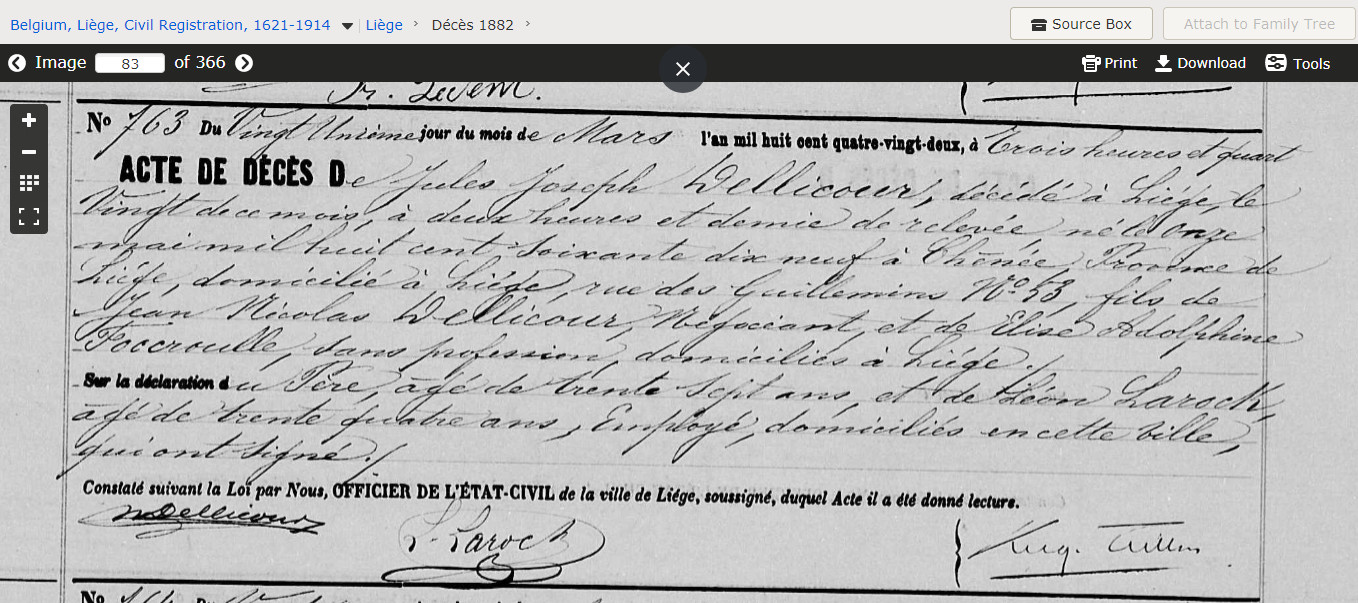 Belgium, Liège, Civil Registration, 1621-1914 | Liège › Décès 1882 ›
Source Box
Attach to Family Tree
Image 83 of 366
Print Download Tools
No 763 Du Vingt Unième jour du mois de Mars l'an mil huit cent quatre-vingt-deux, à Trois heures et quart
ACTE DE DÉCÈS De Jules Joseph Dellicour, décédé à Liége, le
Vingt de ce mois, à deux heures et demie de relevée né le onze
mai mil huit cent soixante dix neuf à Chênée, Province de
Liége, domicilié à Liége, rue des Guillemins No 53, fils de
Jean Nicolas Dellicour, Négociant, et de Elise Adolphine
Foccroulle, sans profession, domiciliés à Liége.
Sur la déclaration du Père, âgé de trente sept ans, et de Léon Larock,
âgé de trente quatre ans, Employé, domiciliés en cette ville,
qui ont signé.
Constaté suivant la Loi par Nous, OFFICIER DE L'ÉTAT-CIVIL de la ville de Liége, soussigné, duquel Acte il a été donné lecture.
NDellicour
L. Larock
No Du